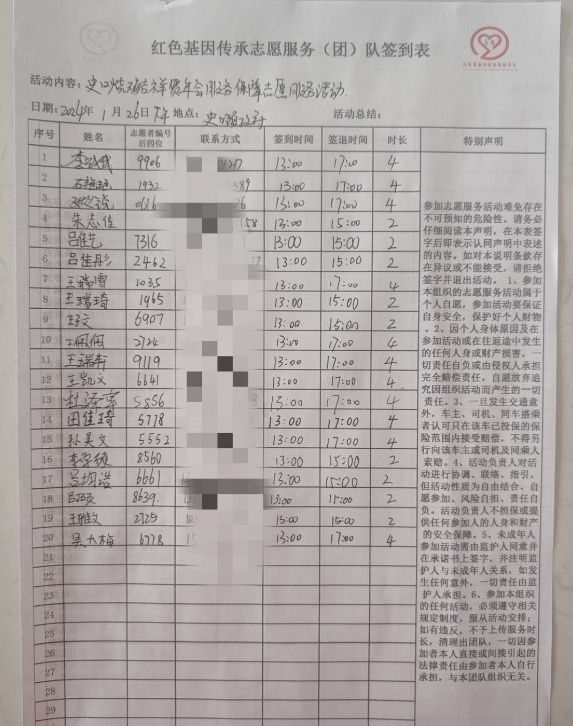 红色基因传承志愿服务（团）队签到表
活动内容：史口 年会服务保障志愿服务活动
日期：2024年1月26日下午 地点：史口 活动总结：
序号 姓名 志愿者编号后四位 联系方式 签到时间 签退时间 时长 特别声明
1 9906 13:00 17:00 4
2 1932 389 13:00 17:00 4
3 13:00 17:00 4
4 朱志佳 158 13:00 15:00 2
5 吕佳艺 7316 13:00 15:00 2
6 吕佳彤 2462 13:00 15:00 2
7 王瑞雪 1035 13:00 17:00 4
8 王瑞琦 1965 13:00 15:00 2
9 6907 13:00 15:00 2
10 王佩佩 2724 13:00 17:00 4
11 9119 13:00 17:00 4
12 王凯文 6641 13:00 17:00 4
13 5856 13:00 17:00 4
14 田佳琦 5778 13:00 17:00 4
15 孙昊文 5552 13:00 17:00 4
16 李学硕 8560 13:00 15:00 2
17 6661 13:00 15:00 2
18 8639 13:00 15:00 2
19 2725 15:00 15:00 2
20 6778 13:00 17:00 4
21
22
23
24
25
26
27
28
29
参加志愿服务活动难免存在
不可预知的危险性。请务必
仔细阅读本声明，在本表签
字后即表示认同声明中表述
的内容。如对本说明条款存
在异议或不能接受，请拒绝
签字并退出活动。1、参加
本组织的志愿服务活动属于
个人自愿，参加活动要保证
自身安全，保护好个人财物
。2、因个人身体原因及在
参加活动或在往返途中发生
的任何人身或财产损害，一
切责任自负或由侵权人承担
完全赔偿责任，自愿放弃追
究因组织活动而产生的一切
责任。3、一旦发生交通意
外，车主、司机、同车搭乘
者认可只在该车已投保的保
险范围内接受赔偿。不得另
行向该车主或司机及同乘人
索赔。4、活动负责人对活
动进行协调、联络、指引，
但活动性质为自由结合、自
愿参加、风险自担、责任自
负。活动负责人不担保或提
供任何参加人的人身和财产
的安全保障。5、未成年人
参加活动需由监护人同意并
在承诺书上签字，并注明监
护人与未成年人关系，如发
生任何意外，一切责任由监
护人承担。6、参加本组织
的任何活动，必须遵守相关
规定制度，服从活动安排；
如有违反，不予上传服务时
长，清理出团队，一切因参
加者本人直接或间接引起的
法律责任由参加者本人自行
承担，与本团队组织无关。